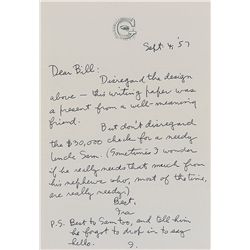 Sept. 4, '57
Dear Bill:
Disregard the design
above — this writing paper was
a present from a well-meaning
friend.
But don't disregard
the $30,000 check for a needy
Uncle Sam. (Sometimes I wonder
if he really needs that much from
his nephews who, most of the time,
are really needy.)
Best,
Ira
P.S. Best to Sam too, and tell him
he forgot to drop in to say
hello. I.